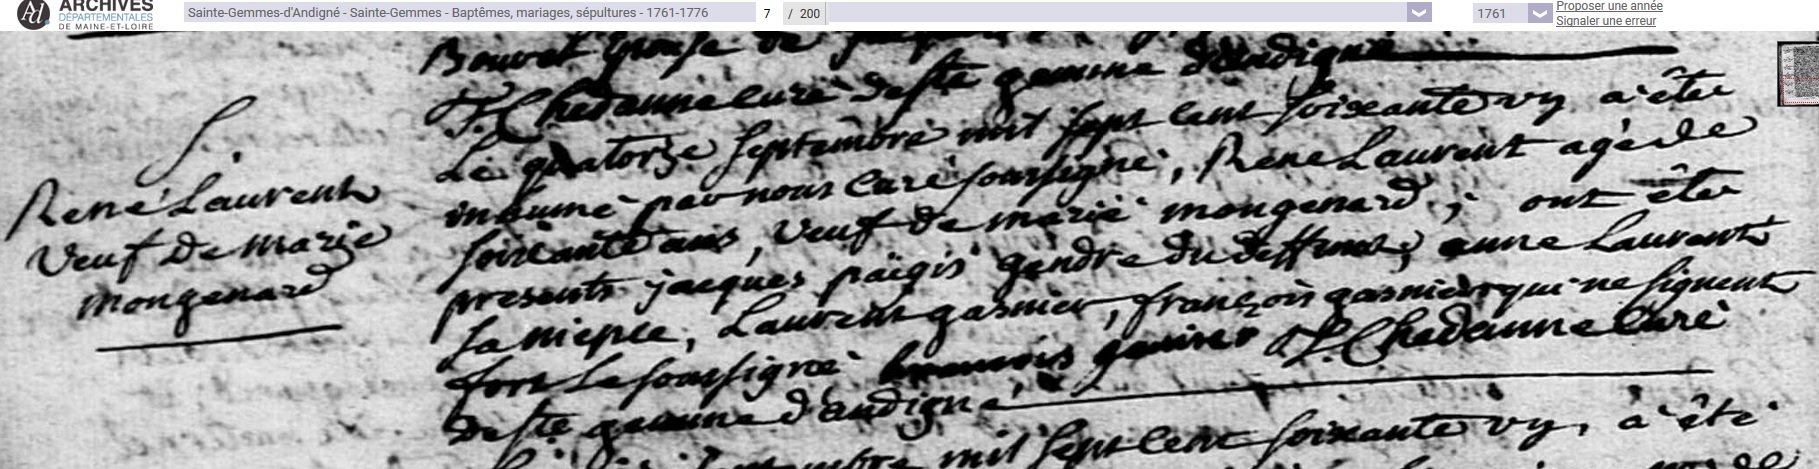 ARCHIVES
DÉPARTEMENTALES
DE MAINE-ET-LOIRE
Sainte-Gemmes-d'Andigné - Sainte-Gemmes - Baptêmes, mariages, sépultures - 1761-1776
7 / 200
1761
Proposer une année
Signaler une erreur
Bouvet
F. Chedanne curé de ste gemme d'andigné
S.
René Laurent
veuf de marie
mongenard
Le quatorze septembre mil sept cent soixante vn, a été
inhumé par nous curé soussigné, René Laurent agé de
soixante ans, veuf de marie mongenard; ont été
presents jacques païgis gendre du deffunt, anne Laurent
sa niepce, Laurent gasnier, françois gasnier qui ne signent
fors le soussigné F. Chedanne curé
de ste gemme d'andigné
mil sept cent soixante vn, a été